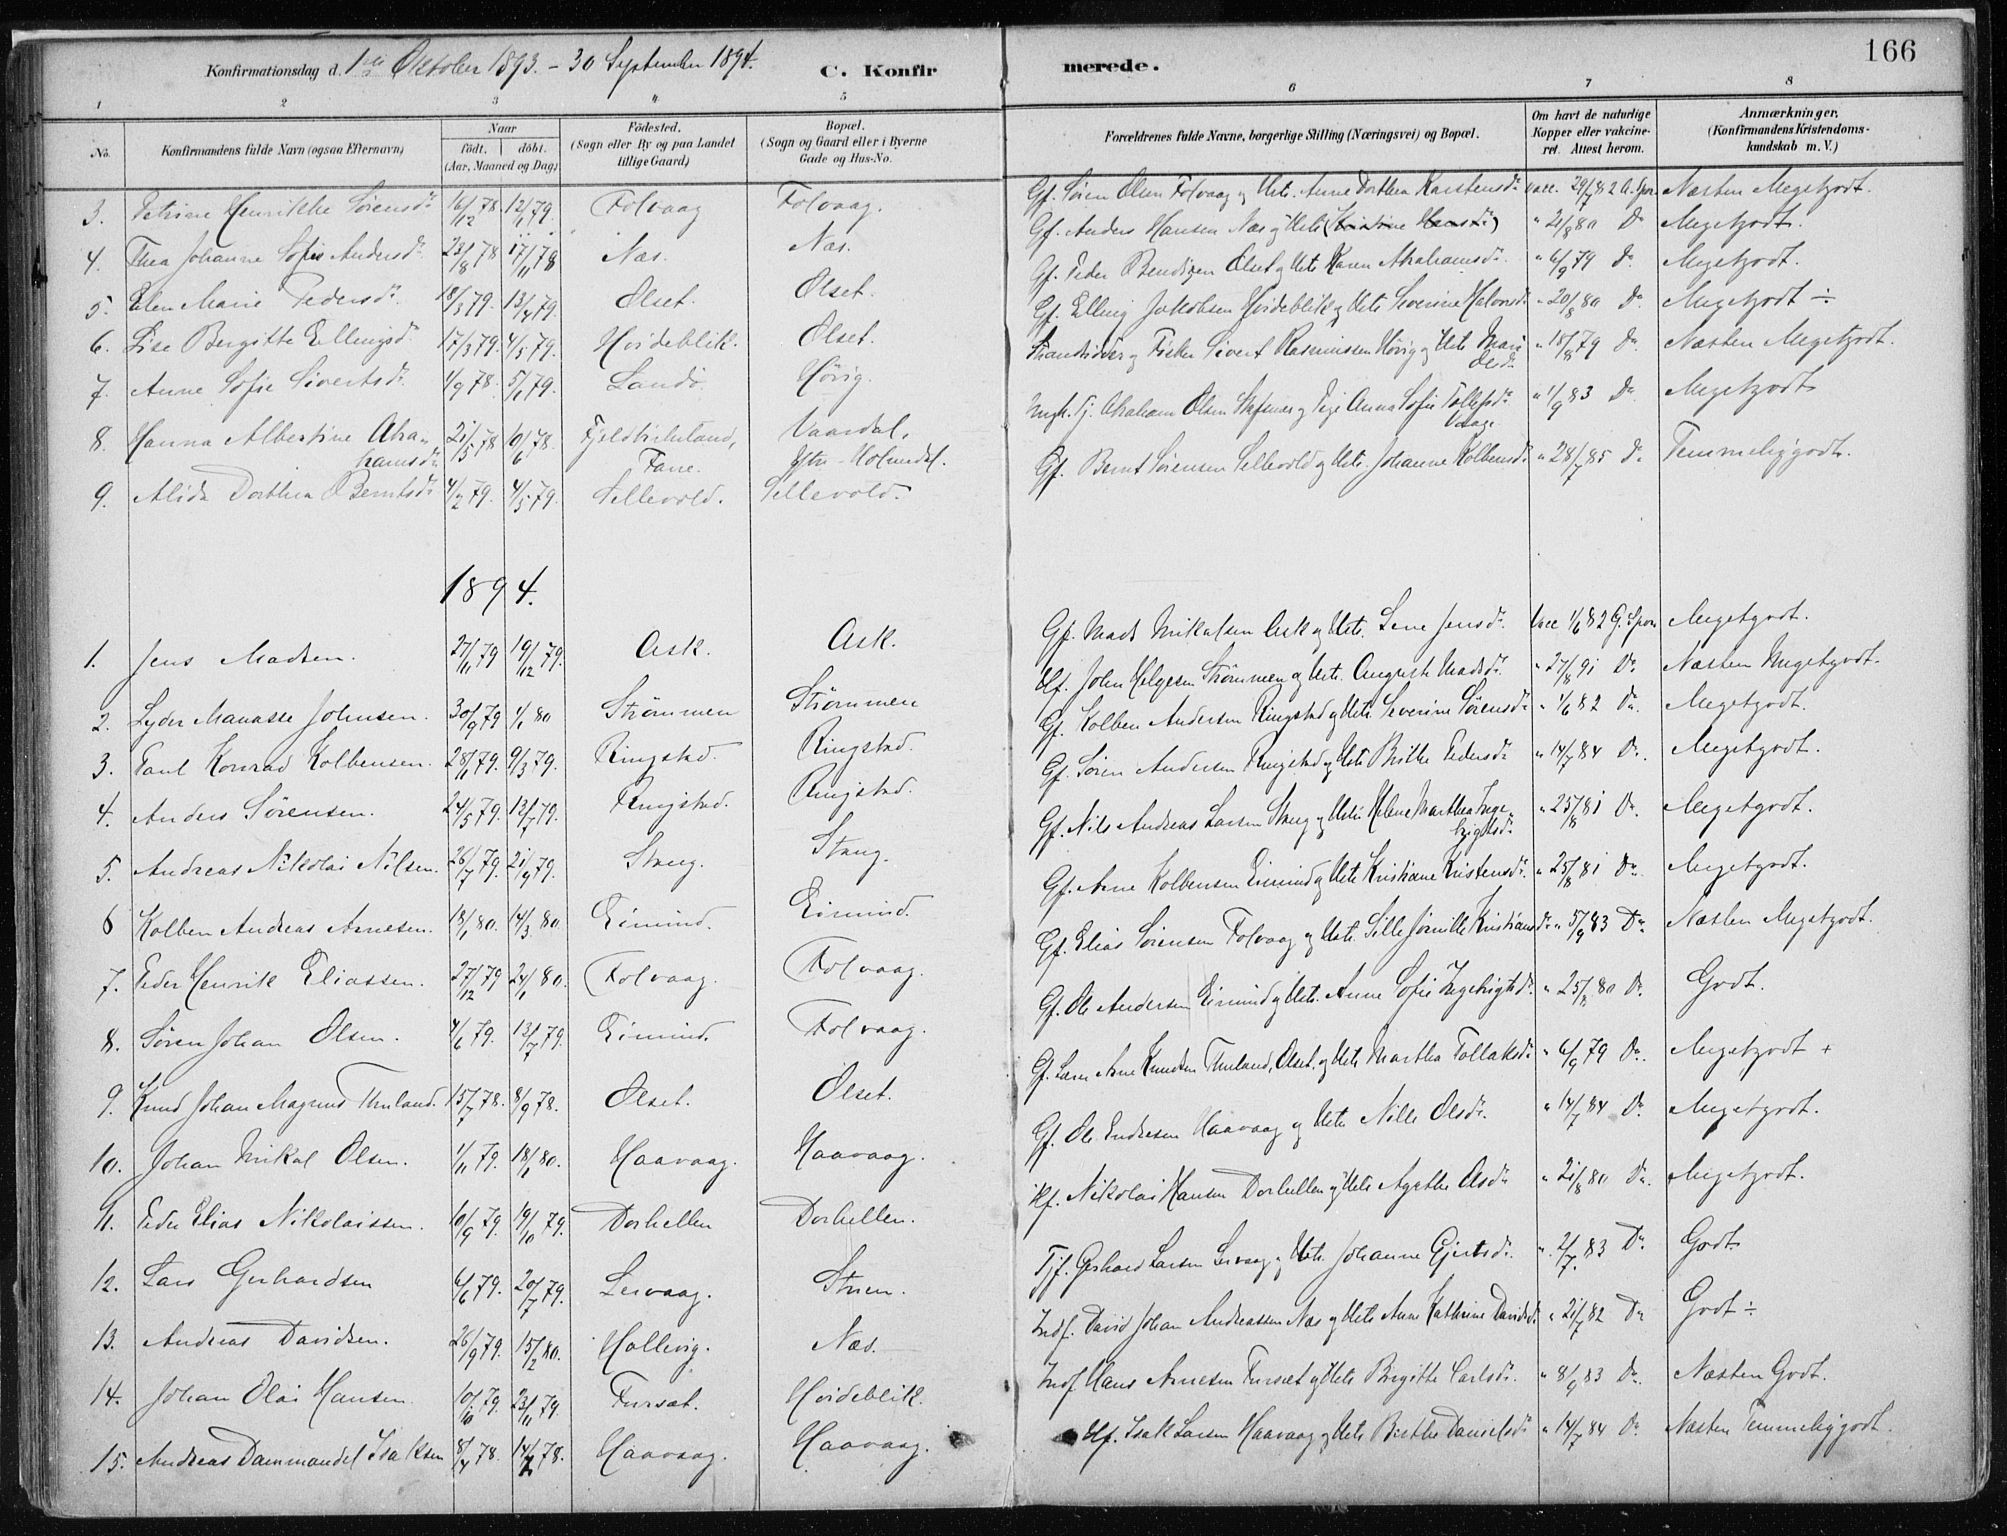 166
Konfirmationsdag d. 1ste Oktober 1893. - 30 September 1894. C. Konfir merede.
1 2 3 4 5 6 7 8
No. Konfirmandens fulde Navn (ogsaa Efternavn) Naar födt. döbt. (Aar, Maaned og Dag) Födested. (Sogn eller By og paa Landet tillige Gaard) Bopæl. (Sogn og Gaard eller i Byerne Gade og Hus-No. Forældrenes fulde Navne, borgerlige Stilling (Næringsvei) og Bopæl. Om havt de naturlige Kopper eller vakcineret. Attest herom. Anmærkninger. (Konfirmandens Kristendomskundskab m. V.)
3. Petrine Henrikke Sörensdr 16/12 78. 12/1 79. Folvaag Folvaag. Gf. Sören Olsen Folvaag og Hst. Anne Dorthea Karstensdr vacc. 29/7 82 Næsten Megetgodt.
4. Thea Johanne Sofie Andersdr 23/8 78 17/11 78 Næs. Næs. Gf. Anders Hansen Næs og Hst. " 21/8 80 Do Megetgodt.
5. Elen Marie Pedersdr. 18/3 79. 13/4 79. Ølset. Ølset. Gf. Peder Bendixen Ølset og Hst. Karen Abrahamsdr. " 6/9 79 Do. Megetgodt.
6. Lise Bergitte Ellingsdr 17/3 79. 4/5 79. Höideblik. Ølset. Gf. Elling Jakobsen Höideblik og Hst. Severine Halvorsdr " 20/8 80 Do Megetgodt ÷
7. Anne Sofie Sivertsdr. 1/9 78. 5/1 79. Landö. Hövig. Strandsidder og Fisker Sivert Rasmussen Hövig og Hst. " 18/8 79 Do. Næsten Megetgodt.
8. Hanna Albertine Abrahamsdr 21/5 78 10/6 78. Fane. Vaardal, Abraham Olsen og Pige Anna Sofie " 1/9 83 Do. Megetgodt
9. Alida Dorthea Berntsdr 4/2 79. 4/5 79. Sellevold. Sellevold. Gf. Bernt Sörensen Sellevold og Hst. Johanne Kolbensdr " 28/7 85 Do Temmeliggodt.
1894.
1. Jens Madsen. 27/11 79 19/12 79. Ask. Ask. Gf. Mads Mikalsen Ask og Hst. Lene Jensdr. Vacc 1/6 82 Megetgodt.
2. Lyder Manasse Johnsen. 30/9 79 4/1 80 Strömmen Strömmen Hf. John Helgesen Strömmen og Hst. Auguste Madsdr. " 27/8 91 Do Næsten Megetgodt.
3. Paul Konrad Kolbensen. 28/1 79. 9/3 79. Ringstad. Ringstad. Gf. Kolben Andersen Ringstad og Hst. Severine Sörensdr " 1/6 82 Do. Megetgodt.
4. Anders Sörensen. 24/5 79. 13/7 79. Ringstad. Ringstad. Gf. Sören Andersen Ringstad og Hst. Brithe Pedersdr " 14/7 84 Do. Megetgodt.
5. Andreas Nikolai Nilsen. 26/7 79. 21/9 79. Stang. Stang. Gf. Nils Andreas Larsen Stang og Hst. Helene Marthea Ingebrigtsdr " 25/8 81 Do. Megetgodt.
6 Kolben Andreas Arnesen. 18/1 80. 14/3 80. Eimind. Eimind. Gf. Arne Kolbensen Eimind og Hst. Kristiane Kristensdr. " 25/8 81 Do. Megetgodt.
7. Peder Henrik Eliassen. 27/12 79 24/1 80. Folvaag. Folvaag. Gf. Elias Sörensen Folvaag og Hst. Sille Kristiansdr " 5/9 83 Do Næsten Megetgodt.
8. Sören Johan Olsen. 4/6 79. 13/7 79. Eimind. Folvaag. Gf. Ole Andersen Eimind og Hst. Anne Sofie Ingebrigtsdr. " 25/8 80 Do. Godt.
9. Knud Johan Magnus Thuland. 15/7 78. 8/9 78. Ølset. Ølset. Gf. Lærer Arne Knudsen Thuland, Ølset, og Hst. Martha Tollaksdr " 6/9 79 Do. Megetgodt +
10. Johan Mikal Olsen. 1/11 79. 18/1 80. Haavaag. Haavaag. Gf. Ole Endresen Haavaag og Hst. Nille Olsdr. " 14/7 84 Do. Megetgodt.
11. Peder Elias Nikolaissen. 10/9 79. 19/10 79. Dorhellen Dorhellen. Hf. Nikolai Hansen Dorhellen og Hst. Agathe Olsdr " 21/8 80 Do. Megetgodt.
12. Lars Gerhardsen 6/6 79. 20/7 79. Leirvaag. Struen. Tjf. Gerhard Larsen Leirvaag og Hst. Johanne Gjertsdr. " 2/7 83 Do. Godt
13. Andreas Davidsen. 26/9 79. 15/2 80. Hallevig. Næs. Indf. David Johan Andreassen Næs og Hst. Anne Kathrine Davidsdr. " 21/7 82 Do Godt ÷
14. Johan Olai Hansen 10/10 79. 23/11 79. Fursæt. Höideblik. Indf. Hans Arnesen Fursæt og Hst. Birgitte Carlsdr. " 8/9 83 Do. Næsten Godt.
15. Andreas Dammandel Isaksen 8/4 78. 14/7 78. Haavaag. Haavaag. Hf. Isak Larsen Haavaag og Hst. Birthe Danielsdr " 14/7 84 Do Næsten Temmeliggodt.